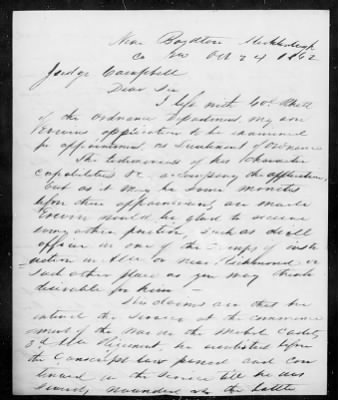 Near Boydton Mecklenburg
Co Oct 24 1862
Judge Campbell
Dear Sir
I left with Col.
of the Ordnance Department my son
application to be examined
for appointment as Lieutenant of Ordnance
The testimonials of his character
capabilities &c. accompany the application,
but as it may be some months
before these appointments are made
would be glad to receive
some other position, such as drill
officer in one of the Camps of inst-
ruction in Ala. or near Richmond or
such other place as you may think
desirable for him –
His claims are that he
entered the service at the commence
ment of the war in the Mobile Cadets,
3.d Ala Regiment. he reenlisted before
the Conscript law passed and con
tinued in the service till he was
severely wounded at the battle